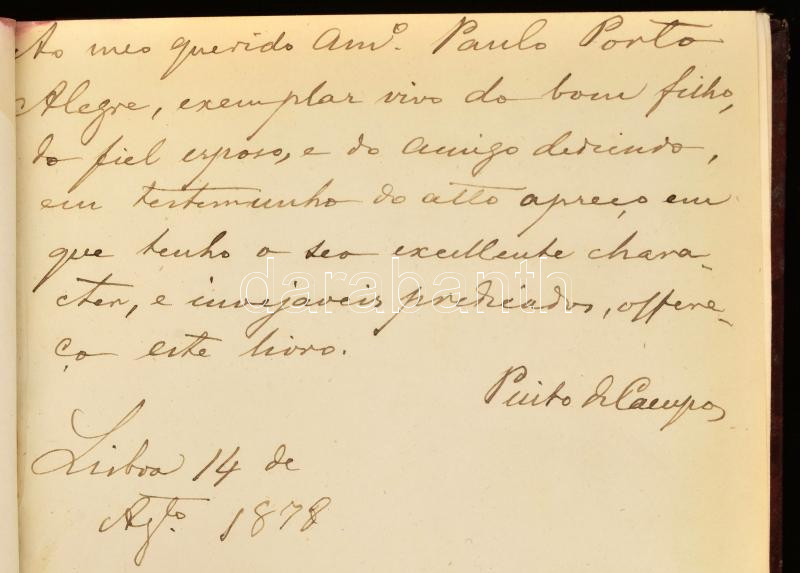 Ao meo querido Amº. Paulo Porto
Alegre, exemplar vivo do bom filho,
do fiel esposo, e do amigo dedicado,
em testemunho do alto apreço em
que tenho o seo excellente chara-
cter, e invejaveis predicados, offere-
ço este livro.
Pinto de Campos
Lisboa 14 de
Agto. 1878
darabanth